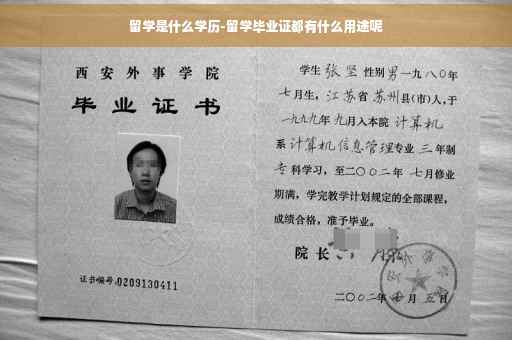 留学是什么学历-留学毕业证都有什么用途呢
西安外事学院
毕业证书
证书编号:0209130411
学生 张坚 性别 男 一九八〇年
七月生，江苏省 苏州县(市)人,于
一九九九年 九月入本院 计算机
系 计算机信息管理专业 三 年制
专 科学习，至二〇〇二年 七月修业
期满，学完教学计划规定的全部课程，
成绩合格，准予毕业。
院长
二〇〇二年 月 五日